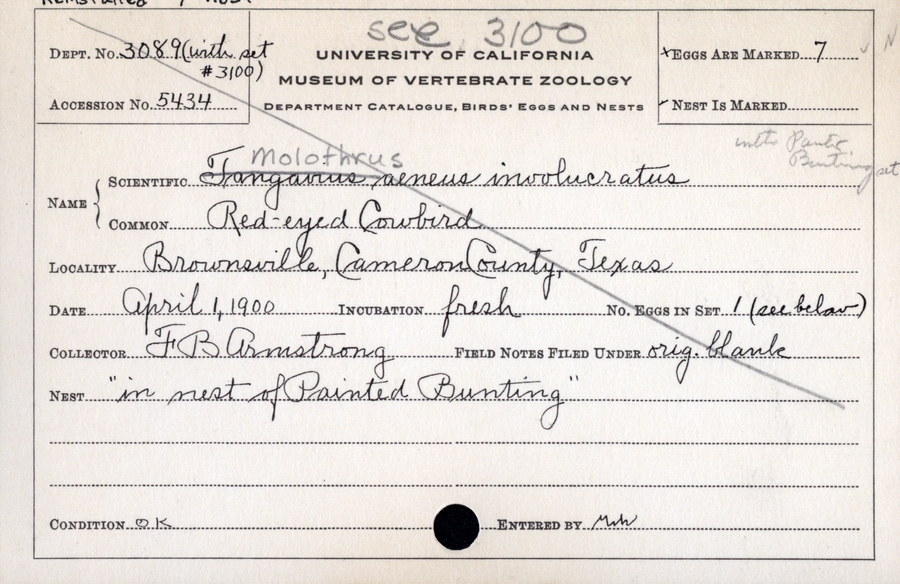 see 3100
DEPT. No. 3089 (with set
#3100)
UNIVERSITY OF CALIFORNIA
MUSEUM OF VERTEBRATE ZOOLOGY
DEPARTMENT CATALOGUE, BIRDS' EGGS AND NESTS
EGGS ARE MARKED 7
ACCESSION No. 5434
NEST IS MARKED
with Painted
Bunting set
Molothrus
NAME
SCIENTIFIC Tangavius aeneus involucratus
COMMON Red-eyed Cowbird
LOCALITY Brownsville, Cameron County, Texas
DATE April 1, 1900 INCUBATION fresh No. EGGS IN SET 1 (see below)
COLLECTOR F B Armstrong FIELD NOTES FILED UNDER orig. blank
NEST "in nest of Painted Bunting"
CONDITION OK ENTERED BY